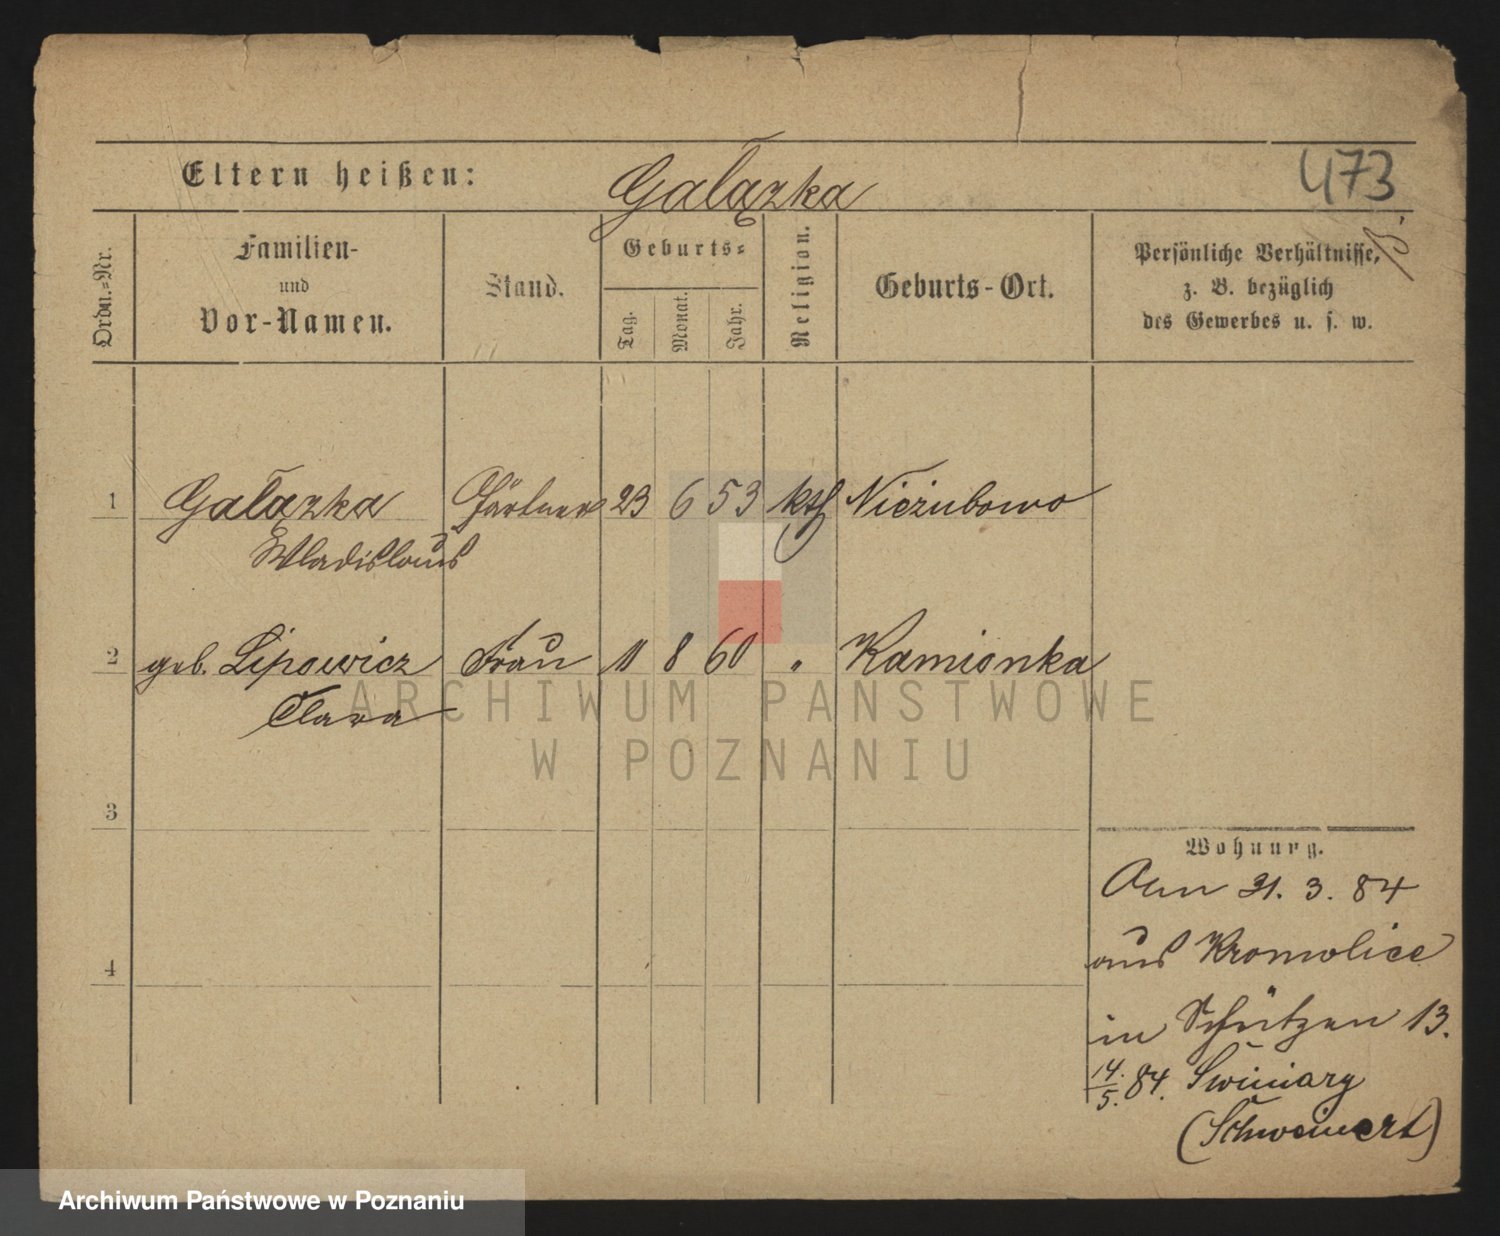 Eltern heißen: Gałązka 473
Ordn.-Nr.
Familien-
und
Vor-Namen.
Stand.
Geburts-
Tag.
Monat.
Jahr.
Religion.
Geburts-Ort.
Persönliche Verhältnisse,
z. B. bezüglich
des Gewerbes u. s. w.
1 Gałązka Gärtner 23 6 53 kth Nieżubowo
Wladislaus
2 geb. Lipowicz Frau 11 8 60 " Kamionka
Clara
3
4
Wohnung.
31. 3. 84
aus Kromolice
in Schützen 13.
14/5. 84. Swiniary
(Schweinert)
ARCHIWUM PAŃSTWOWE
W POZNANIU
Archiwum Państwowe w Poznaniu